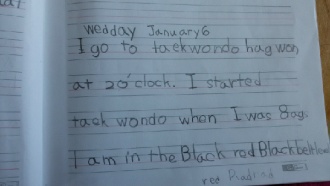 wedday January 6
I go to taekwondo hag won
at 2 o'clock. I started
taek wondo when I was 8 ag.
I am in the Black red Black belt
red